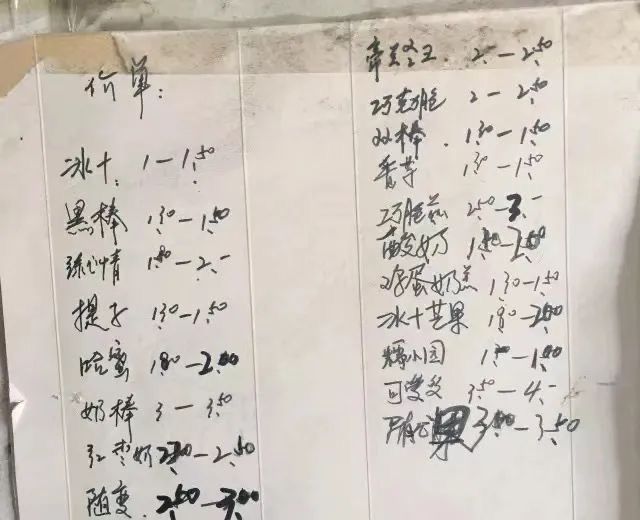 价单：
冰十： 1－1.50
黑棒 1.30－1.50
绿心情 1.80－2.－
提子 1.30－1.50
哈蜜 1.80－2.00
奶棒 3－3.50
红枣奶 2.30－2.50
随变. 2.50－3.00
帝王 2.－2.50
巧克脆 2－2.50
双棒. 1.30－1.50
香芋 1.30－1.50
巧脆兹 2.50－3.－
酸奶
鸡蛋奶羔 1.30－1.50
冰十芒果 1.80－2.00
小园
可爱多 3.50－4.－
果 3.00－3.50